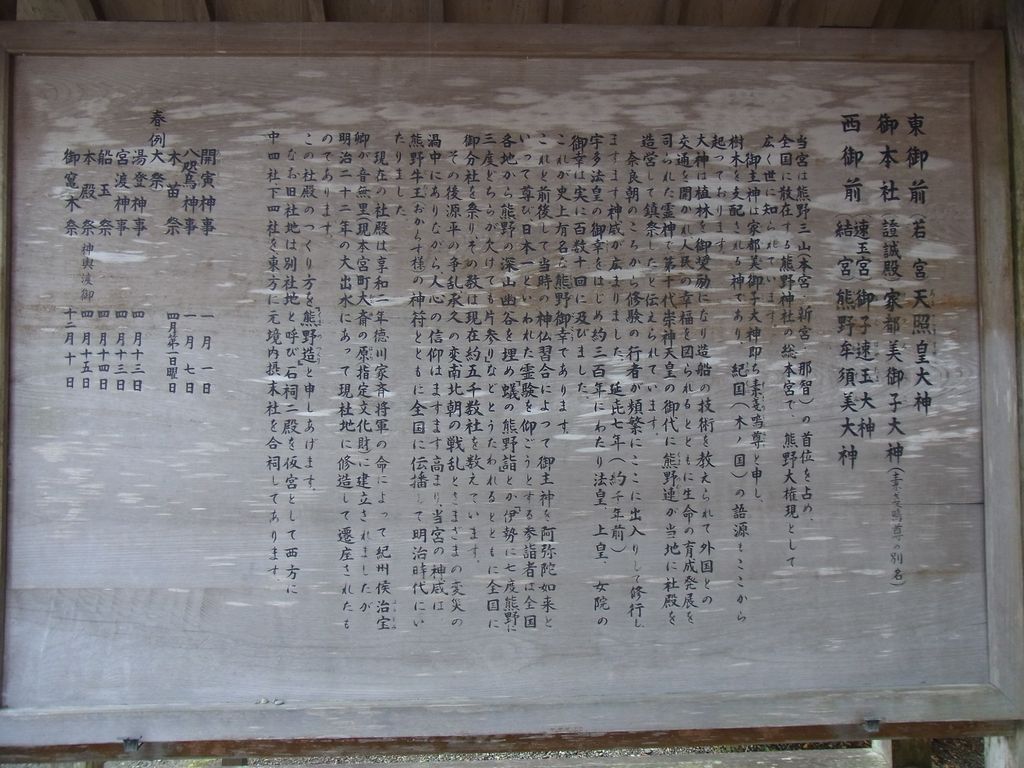 東御前(若宮 天照皇大神
御本社 證誠殿 家都美御子大神(素戔嗚尊の別名)
西御前(速玉宮 御子速玉大神
結宮 熊野牟須美大神
当宮は熊野三山(本宮・新宮・那智)の首位を占め、
全国に散在する熊野神社の総本宮で、熊野大権現として
広く世に知られています。
御主神は家都美御子大神即ち素戔嗚尊と申し、
樹木を支配される神であり、紀国(木ノ国)の語源もここから
起っております。
大神は植林を御奨励になり造船の技術を教えられて外国との
交通を開かれ人民の幸福を図られるとともに生命の育成発展を
司られた霊神で第十代崇神天皇の御代に熊野連が当地に社殿を
造営して鎮祭したと伝えられています。
奈良朝のころから修験の行者が頻繁にここに出入りして修行し
ますます神威が広まりました。延喜七年(約千年前)
宇多法皇の御幸をはじめ約三百年にわたり法皇、上皇、女院の
御幸は実に百数十回に及びました。
これが史上有名な熊野御幸であります。
これと前後して当時の神仏習合によって御主神を阿弥陀如来と
いって尊び、日本一といわれた霊験を仰ごうとする参詣者は全国
各地から熊野の深山幽谷を埋め「蟻の熊野詣」とか「伊勢に七度熊野に
三度どちらが欠けても片参り」などとうたわれるとともに全国に
御分社を祭りその数は現在約五千数社を数えています。
その後源平の争乱承久の変南北朝の戦乱とさまざまの変災の
渦中にありながら人心の信仰はますます高まり、当宮の神威は
熊野牛王おからす様の神符とともに全国に伝播して明治時代にい
たりました。
現在の社殿は享和二年徳川家斉将軍の命によって紀州侯治宝
卿が音無里(現本宮町大斎の原指定文化財)に建立されましたが
明治二十二年の大出水にあって現社地に修造して遷座されたも
のであります。
この社殿のつくり方を熊野造と申しあげます。
なお旧社地は別社地と呼び、石祠二殿を仮宮として西方に
中四社下四社を東方に元境内摂末社を合祠してあります。
開寅神事 一月一日
八咫烏神事 一月七日
木苗祭 四月第一日曜日
春例大祭
湯登神事 四月十三日
宮渡神事 四月十三日
船玉祭 四月十四日
本殿祭 神輿渡御 四月十五日
御竃木祭 十二月十日